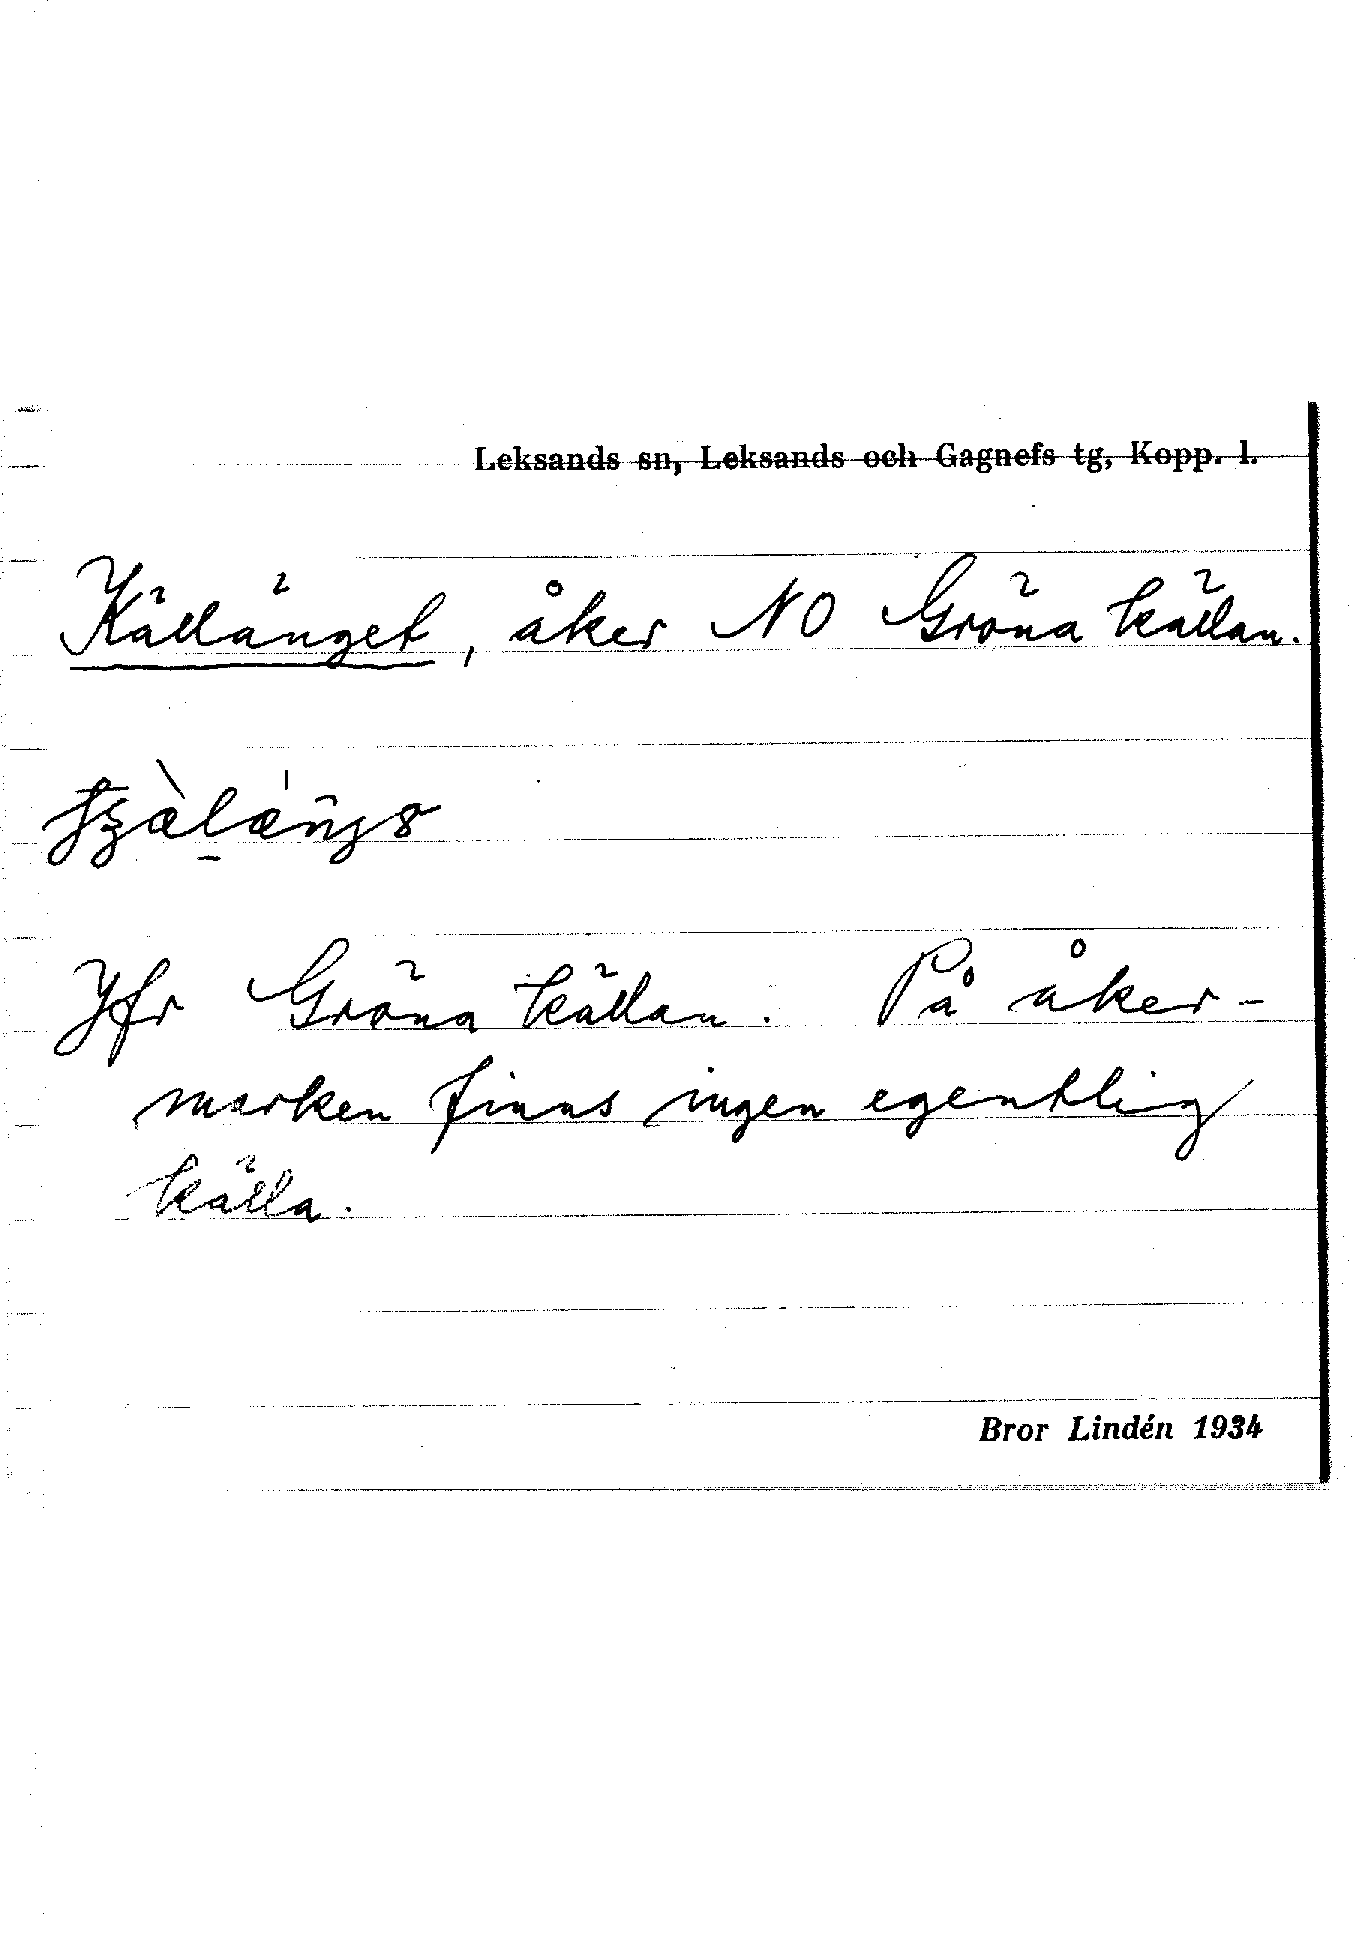 Leksands sn, Leksands och Gagnefs tg, Kopp. l.
Källänget, åker NO Gröna källan.
Jfr Gröna källan. På åker-
marken finns ingen egentlig
källa.
Bror Lindén 1934